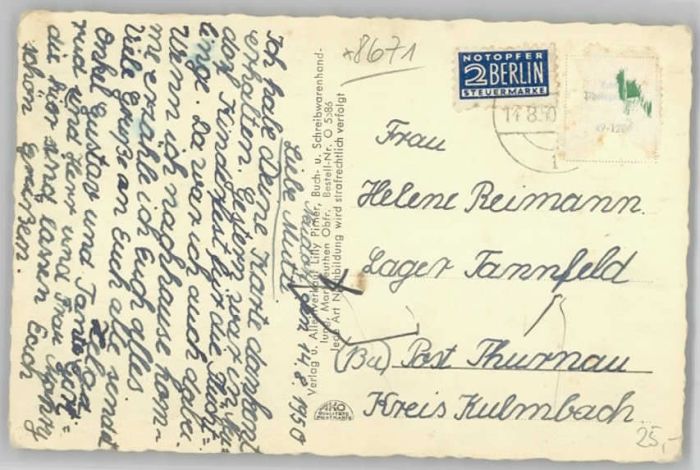 x8671
NOTOPFER
2 BERLIN
STEUERMARKE
14.8.50
Frau
Helene Reimann
Lager Tannfeld
(13a) Post Thurnau
Kreis Kulmbach
25,-
14.8.1950
Liebe Mutti
Ich habe Deine Karte dankend
erhalten. Gestern war in
das Kindfest für die
linge. Da war ich auch dabei.
Wenn ich nachhause kom=
me erzähle ich Euch alles
Viele Grüße an Euch alle sendet
Onkel Gustav und Tante
trud und Herr und Frau
die hier sind lassen Euch
schön grüßen.
Verlag u. Alleinverkauf Lilly Pirner, Buch- u. Schreibwarenhand-
lung, Marktleuthen Obfr. Bestell-Nr. O 5586
Jede Art Nachbildung wird strafrechtlich verfolgt
AKO